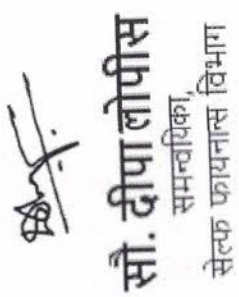 सौ. दीपा लोपीस
समन्वयिका,
सेल्फ फायनान्स विभाग